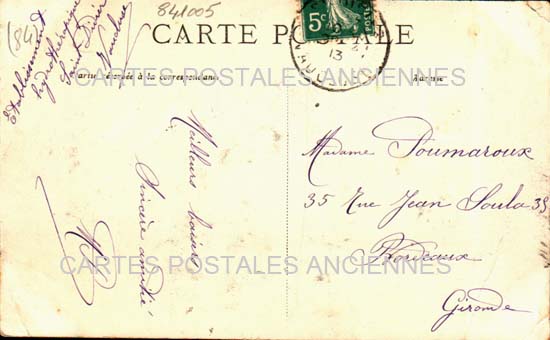 (84)
841005
Etablissement
hydrothérapique
Saint Didier
Vaucluse
5c
CARTE POSTALE
Partie réservée à la correspondance
Adresse
13
CARTES POSTALES ANCIENNES
Meilleurs baisers
Sincère amitié
Madame Poumaroux
35 Rue Jean Soula 35
Bordeaux
Gironde
CARTES POSTALES ANCIENNES